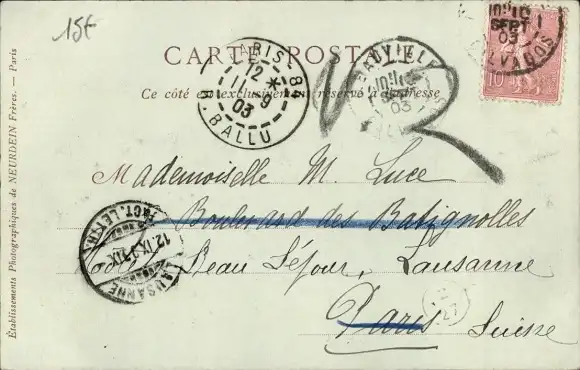 15f
CARTE POSTALE
Ce côté est exclusivement réservé à l'adresse
PARIS 84
12 *
11 - 9
03
R. BALLU
SEPT
03
CALVADOS
10
03
Mademoiselle M. Luce
Boulevard des Batignolles
Hôtel Beau Séjour, Lausanne
Paris Suisse
LAUSANNE
12.IX.
Établissements Photographiques de NEURDEIN Frères. — Paris